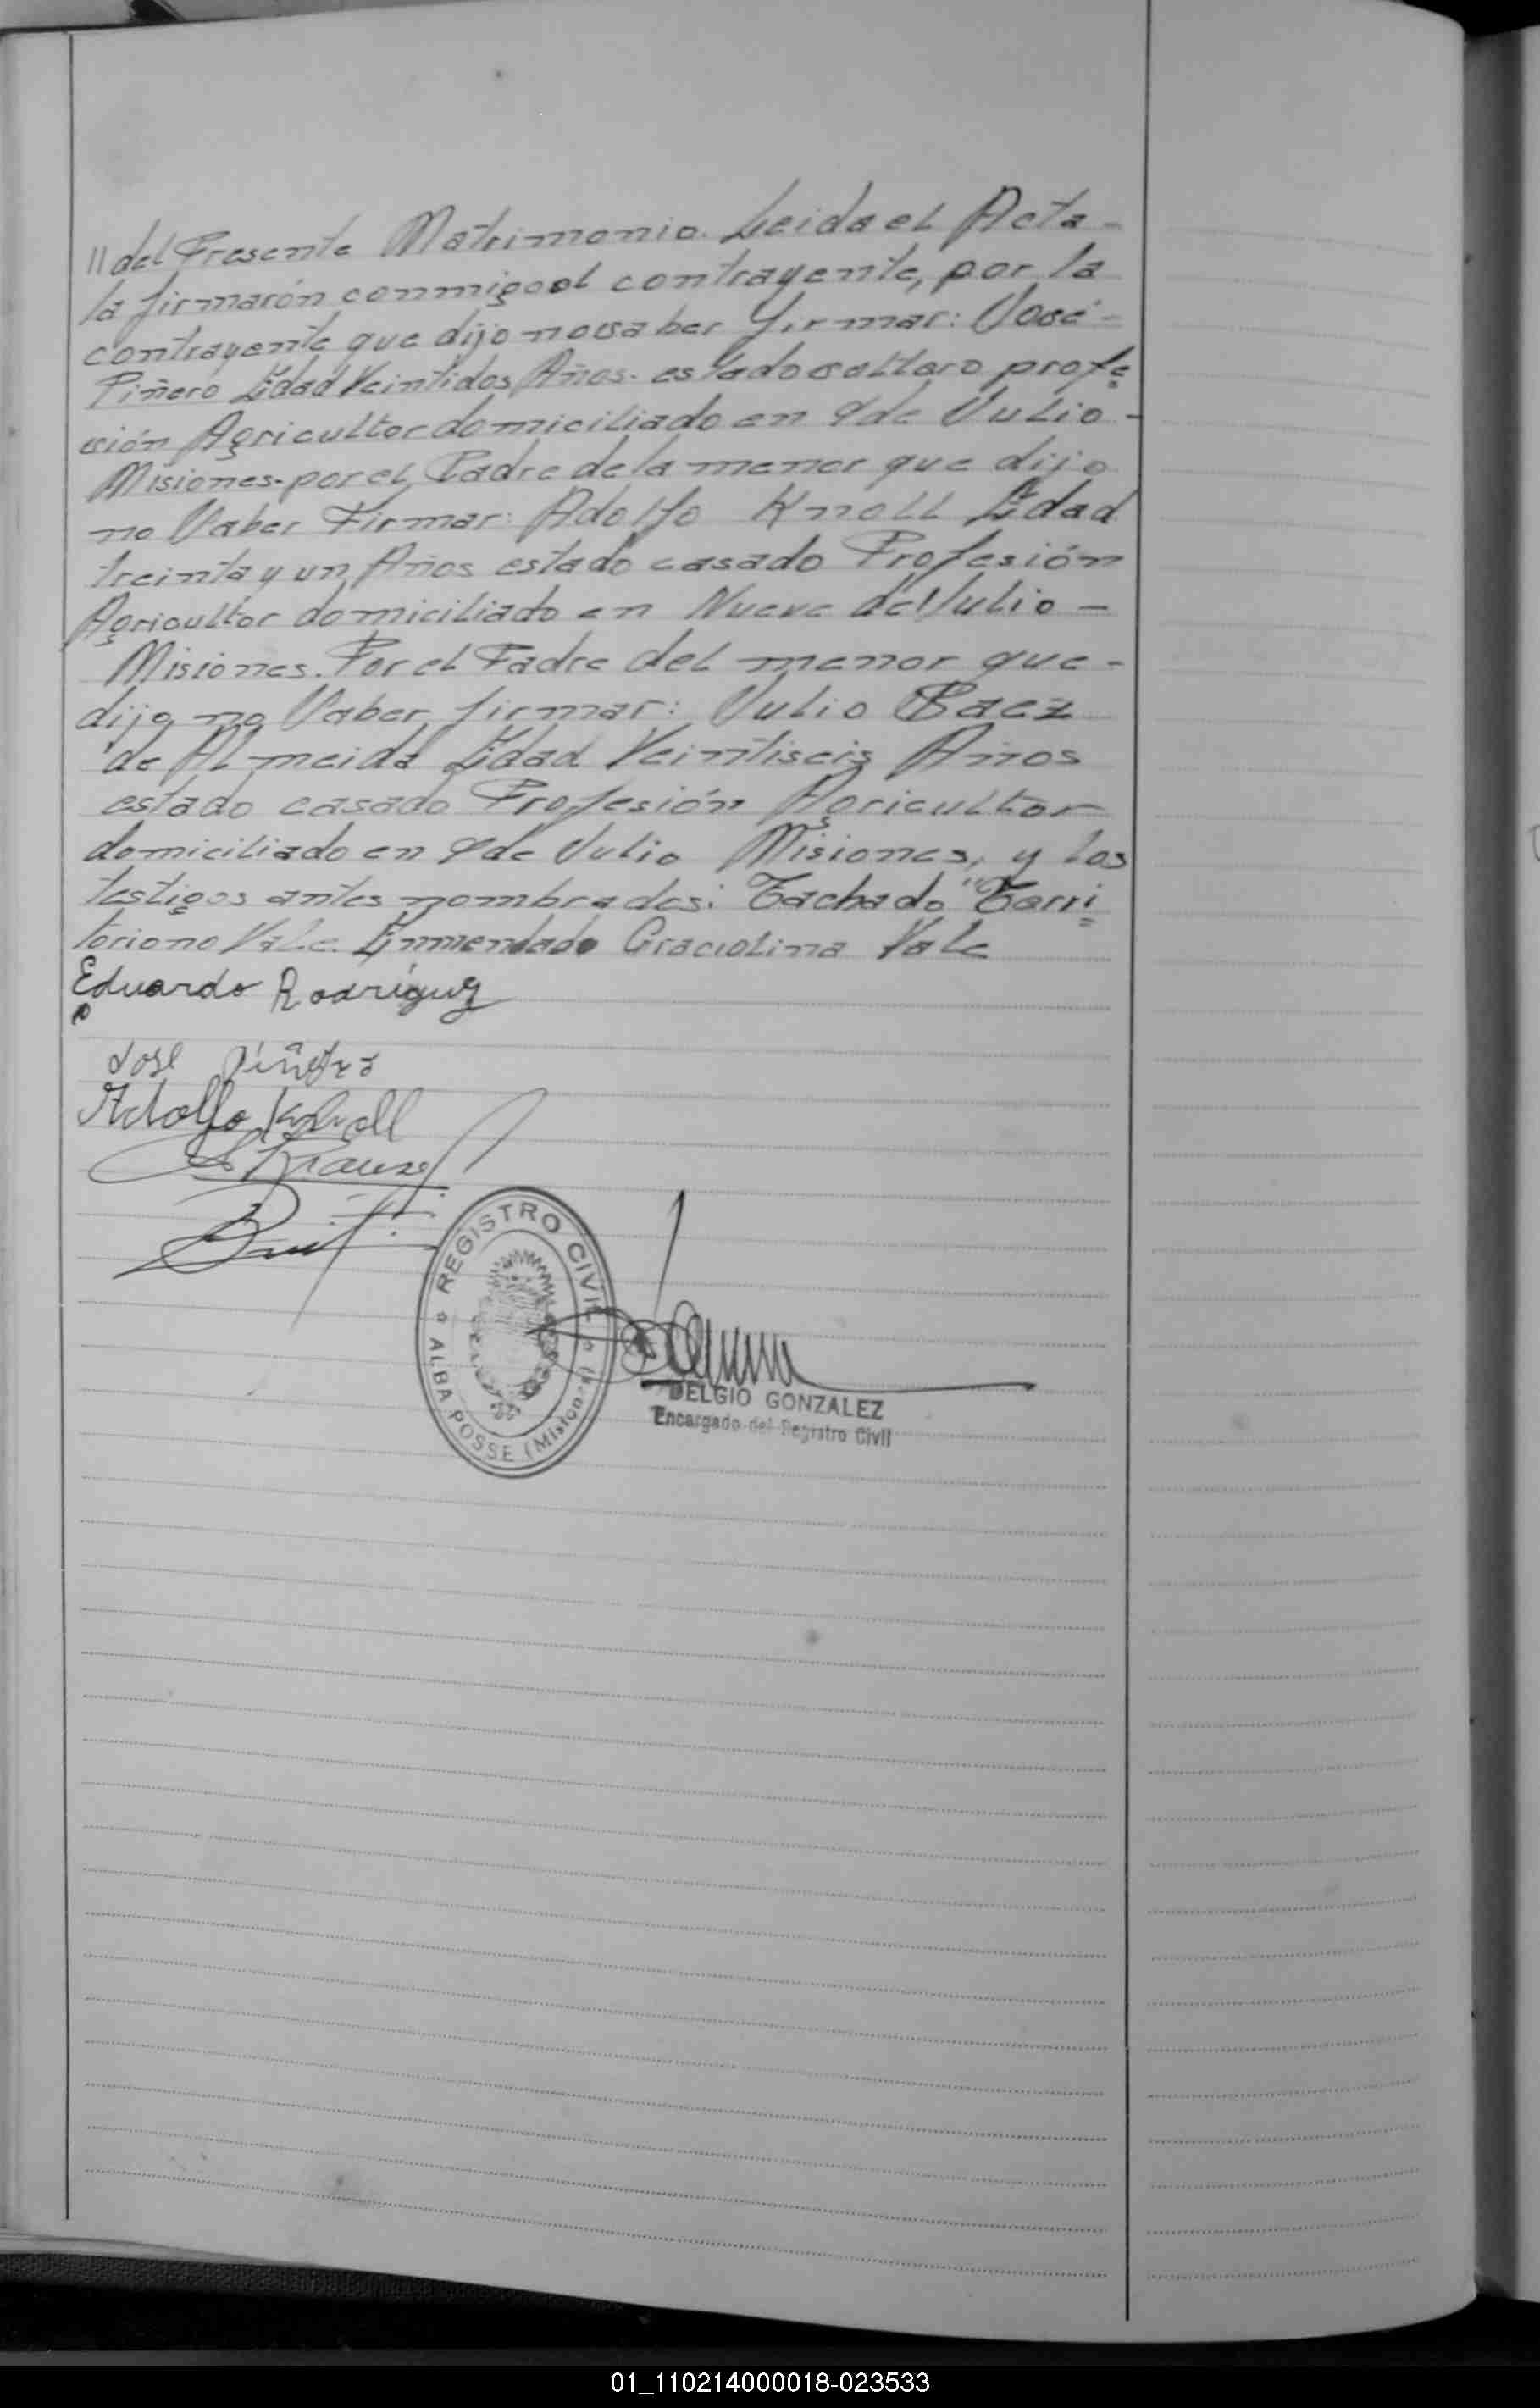 // del Presente Matrimonio. Leida el Acta -
la firmarón conmigo el contrayente, por la
contrayente que dijo no saber firmar: José -
Piñero Edad Veintidos Años. estado soltero profe
sión Agricultor domiciliado en 9 de Julio -
Misiones. por el Padre de la menor que dijo
no Saber Firmar: Adolfo Knoll Edad
treinta y un Años estado casado Profesión
Agricultor domiciliado en Nueve de Julio -
Misiones. Por el Padre del menor que -
dijo no Saber firmar: Julio Baez
de Almeida Edad Veintiseis Años
estado casado Profesión Agricultor
domiciliado en 9 de Julio Misiones, y los
testigos antes nombrados: Tachado "Terri
toriono Vale. Enmendado Graciolina Vale
Eduardo Rodriguez
José Piñero
Adolfo Knoll
Krause
REGISTRO CIVIL
ALBA POSSE (Misiones)
DELGIO GONZALEZ
Encargado del Registro Civil
01_110214000018-023533